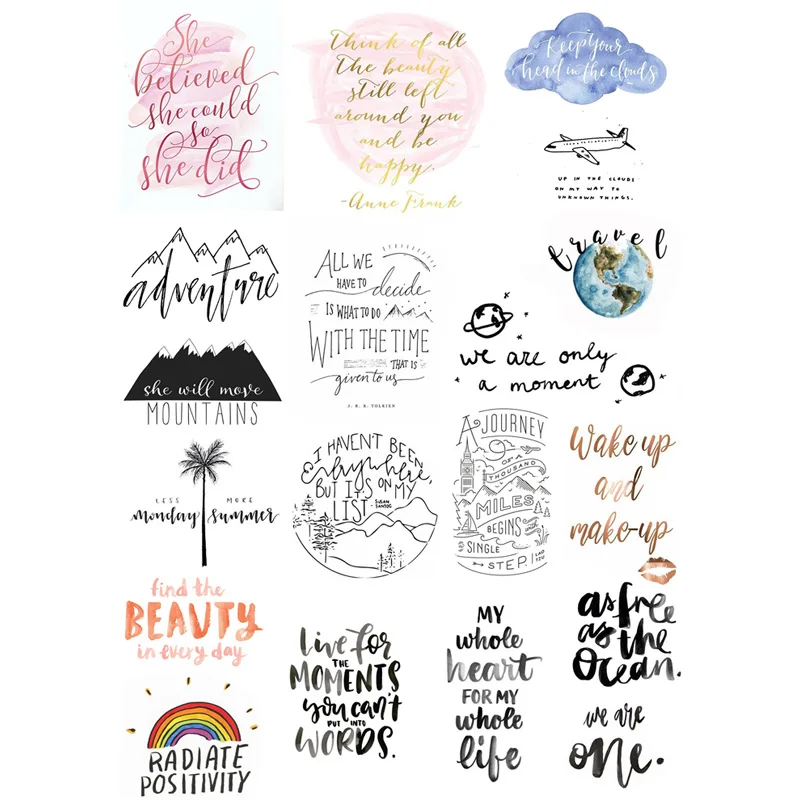 She
believed
she could
so
she did
Think of all
the beauty
still left
around you
and be
happy.
-Anne Frank
Keep your
head in the clouds
UP IN THE CLOUDS
ON MY WAY TO
UNKNOWN THINGS.
adventure
she will move
MOUNTAINS
ALL WE
HAVE TO decide
IS WHAT TO DO
WITH THE TIME
THAT IS
given to us
J. R. R. TOLKIEN
travel
we are only
a moment
LESS MORE
monday summer
I HAVEN'T BEEN
everywhere,
BUT IT'S ON MY
LIST
SUSAN
SONTAG
A JOURNEY
OF A
THOUSAND
MILES
BEGINS
with
a
SINGLE
STEP. LAO
TZU
Wake up
and
make-up
find the
BEAUTY
in every day
RADIATE
POSITIVITY
live for
THE
MOMENTS
you can't
PUT INTO
WORDS.
MY
whole
heart
FOR MY
whole
life
as free
as the
Ocean.
we are
one.